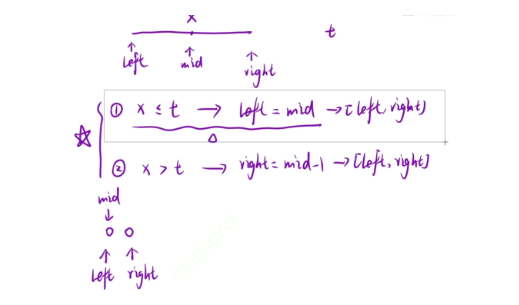 x t
left mid right
① x ≤ t → left = mid → [left, right)
② x > t → right = mid-1 → [left, right]
mid
left right